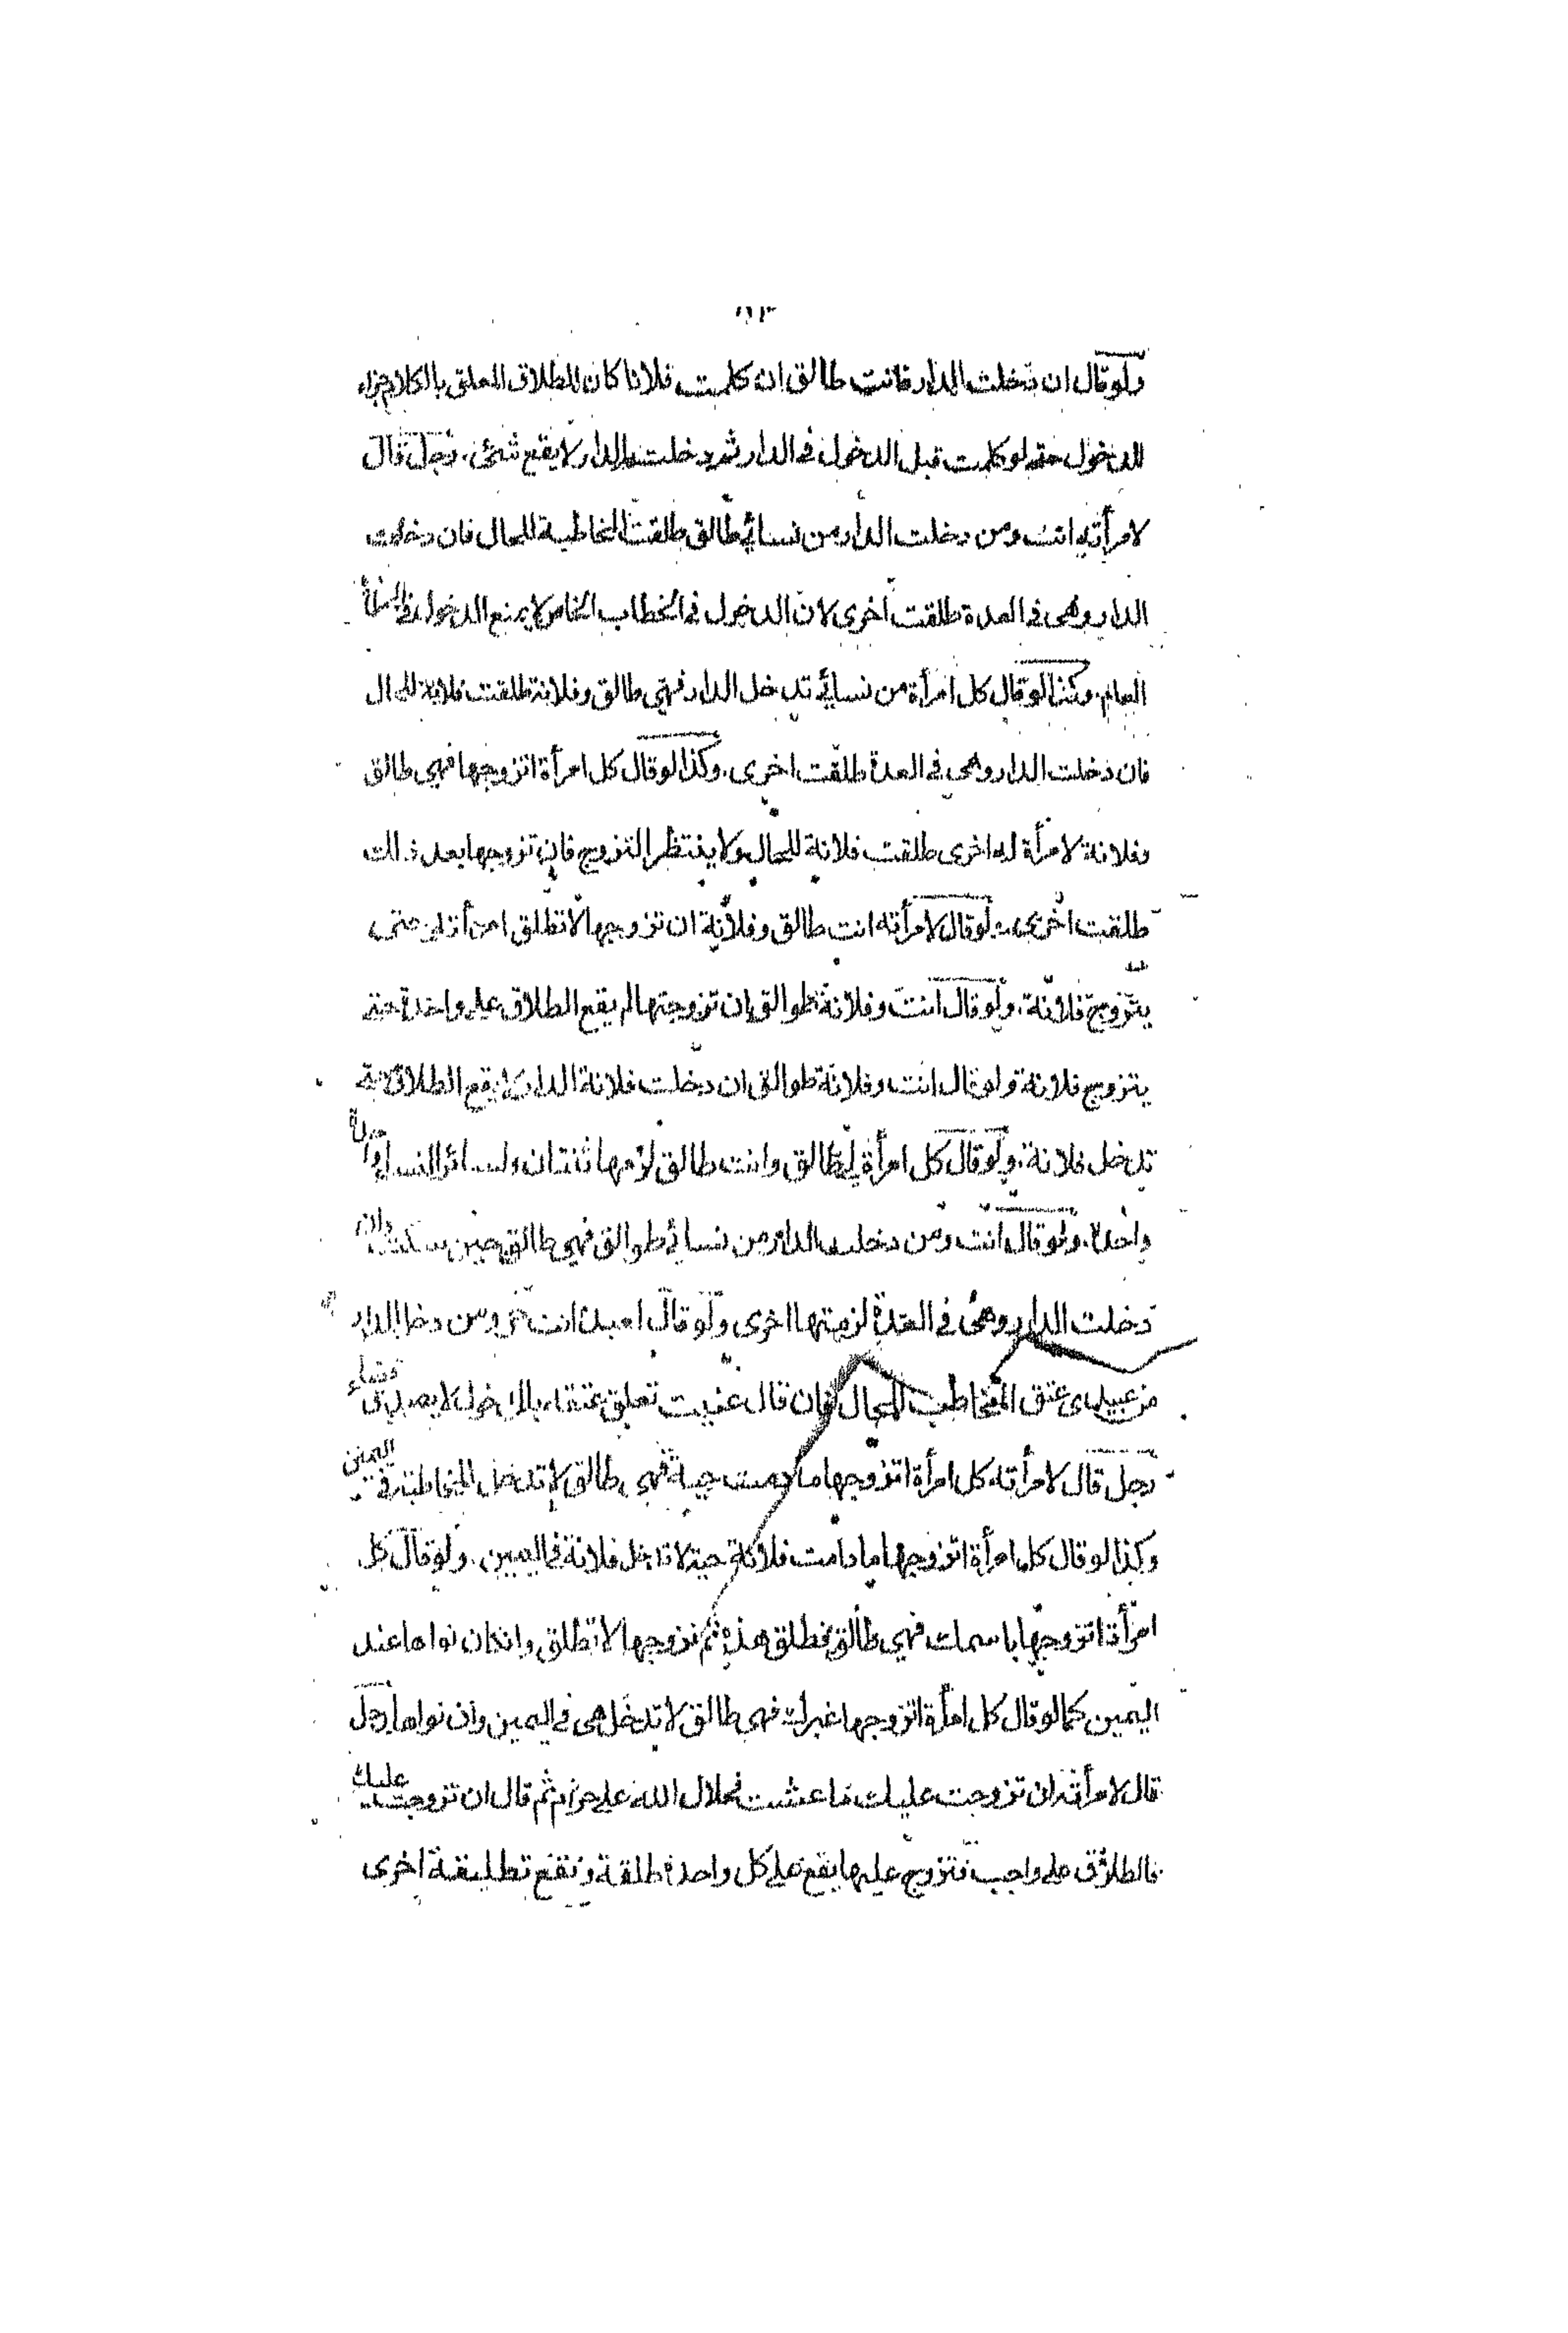 ولو قال ان دخلت الدار فانت طالق ان كلمت فلانا كان الطلاق المعلق بالكلام جزاء
للدخول حتى لو كلمت قبل الدخول في الدار ثم دخلت الدار لا يقع شئ، رجل قال
لامرأته انت ومن دخلت الدار من نسائي طالق طلقت المخاطبة للحال فان دخلت
الدار وهي في العدة طلقت اخرى لان الدخول في الخطاب الخاص لا يمنع الدخول في
العام، وكذا لو قال كل امرأة من نسائي تدخل الدار فهي طالق وفلانة طلقت فلانة للحال
فان دخلت الدار وهي في العدة طلقت اخرى، وكذا لو قال كل امرأة اتزوجها فهي طالق
وفلانة لامرأة له اخرى طلقت فلانة للحال ولا ينتظر التزوج فان تزوجها بعد ذلك
طلقت اخرى، ولو قال لامرأته انت طالق وفلانة ان تزوجها لا تطلق امرأته حتى
يتزوج فلانة، ولو قال انت وفلانة طوالق ان تزوجتها لم يقع الطلاق على واحدة حتى
يتزوج فلانة ولو قال انت وفلانة طوالق ان دخلت فلانة الدار لا يقع الطلاق حتى
تدخل فلانة، ولو قال كل امرأة لي طالق وانت طالق لزمها ثنتان ولسائر النساء
واحدة، ولو قال انت ومن دخلت الدار من نسائي طوالق فهي طالق حين سكت وان
دخلت الدار وهي في العدة لزمتها اخرى ولو قال لعبده انت حر ومن دخل الدار
من عبيدي عتق المخاطب للحال فان قال عنيت تعلق عتقه بالدخول لا يصدق قضاء
رجل قال لامرأته كل امرأة اتزوجها ما دمت حية فهي طالق لا تدخل المخاطبة في اليمين
وكذا لو قال كل امرأة اتزوجها ما دامت فلانة حية لا تدخل فلانة في اليمين، ولو قال كل
امرأة اتزوجها باسمك فهي طالق فطلق هذه ثم تزوجها لا تطلق وان كان نواها عند
اليمين كما لو قال كل امرأة اتزوجها غيرك فهي طالق لا تدخل هي في اليمين وان نواها رجل
قال لامرأته ان تزوجت عليك ما عشت فحلال الله علي حرام ثم قال ان تزوجت عليك
فالطلاق علي واجب فتزوج عليها يقع على كل واحدة طلقة وتقع تطليقة اخرى